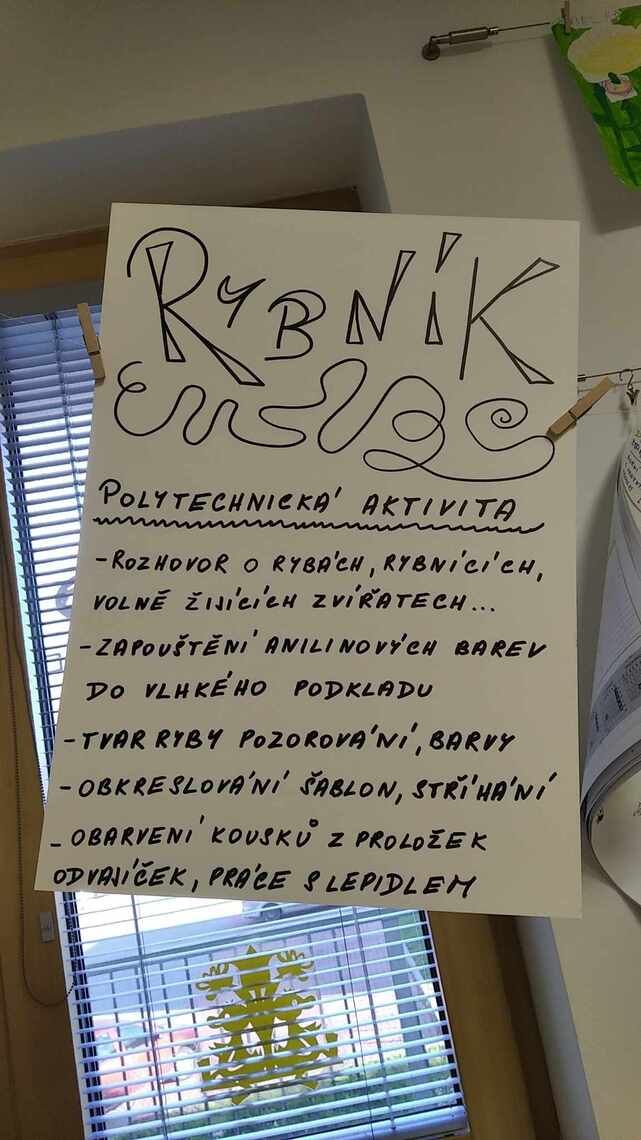 RYBNÍK
POLYTECHNICKÁ AKTIVITA
-ROZHOVOR O RYBÁCH, RYBNÍCÍCH,
VOLNĚ ŽIJÍCÍCH ZVÍŘATECH...
-ZAPOUŠTĚNÍ ANILINOVÝCH BAREV
DO VLHKÉHO PODKLADU
-TVAR RYBY POZOROVÁNÍ, BARVY
-OBKRESLOVÁNÍ ŠABLON, STŘÍHÁNÍ
-OBARVENÍ KOUSKŮ Z PROLOŽEK
ODVAJÍČEK, PRÁCE S LEPIDLEM